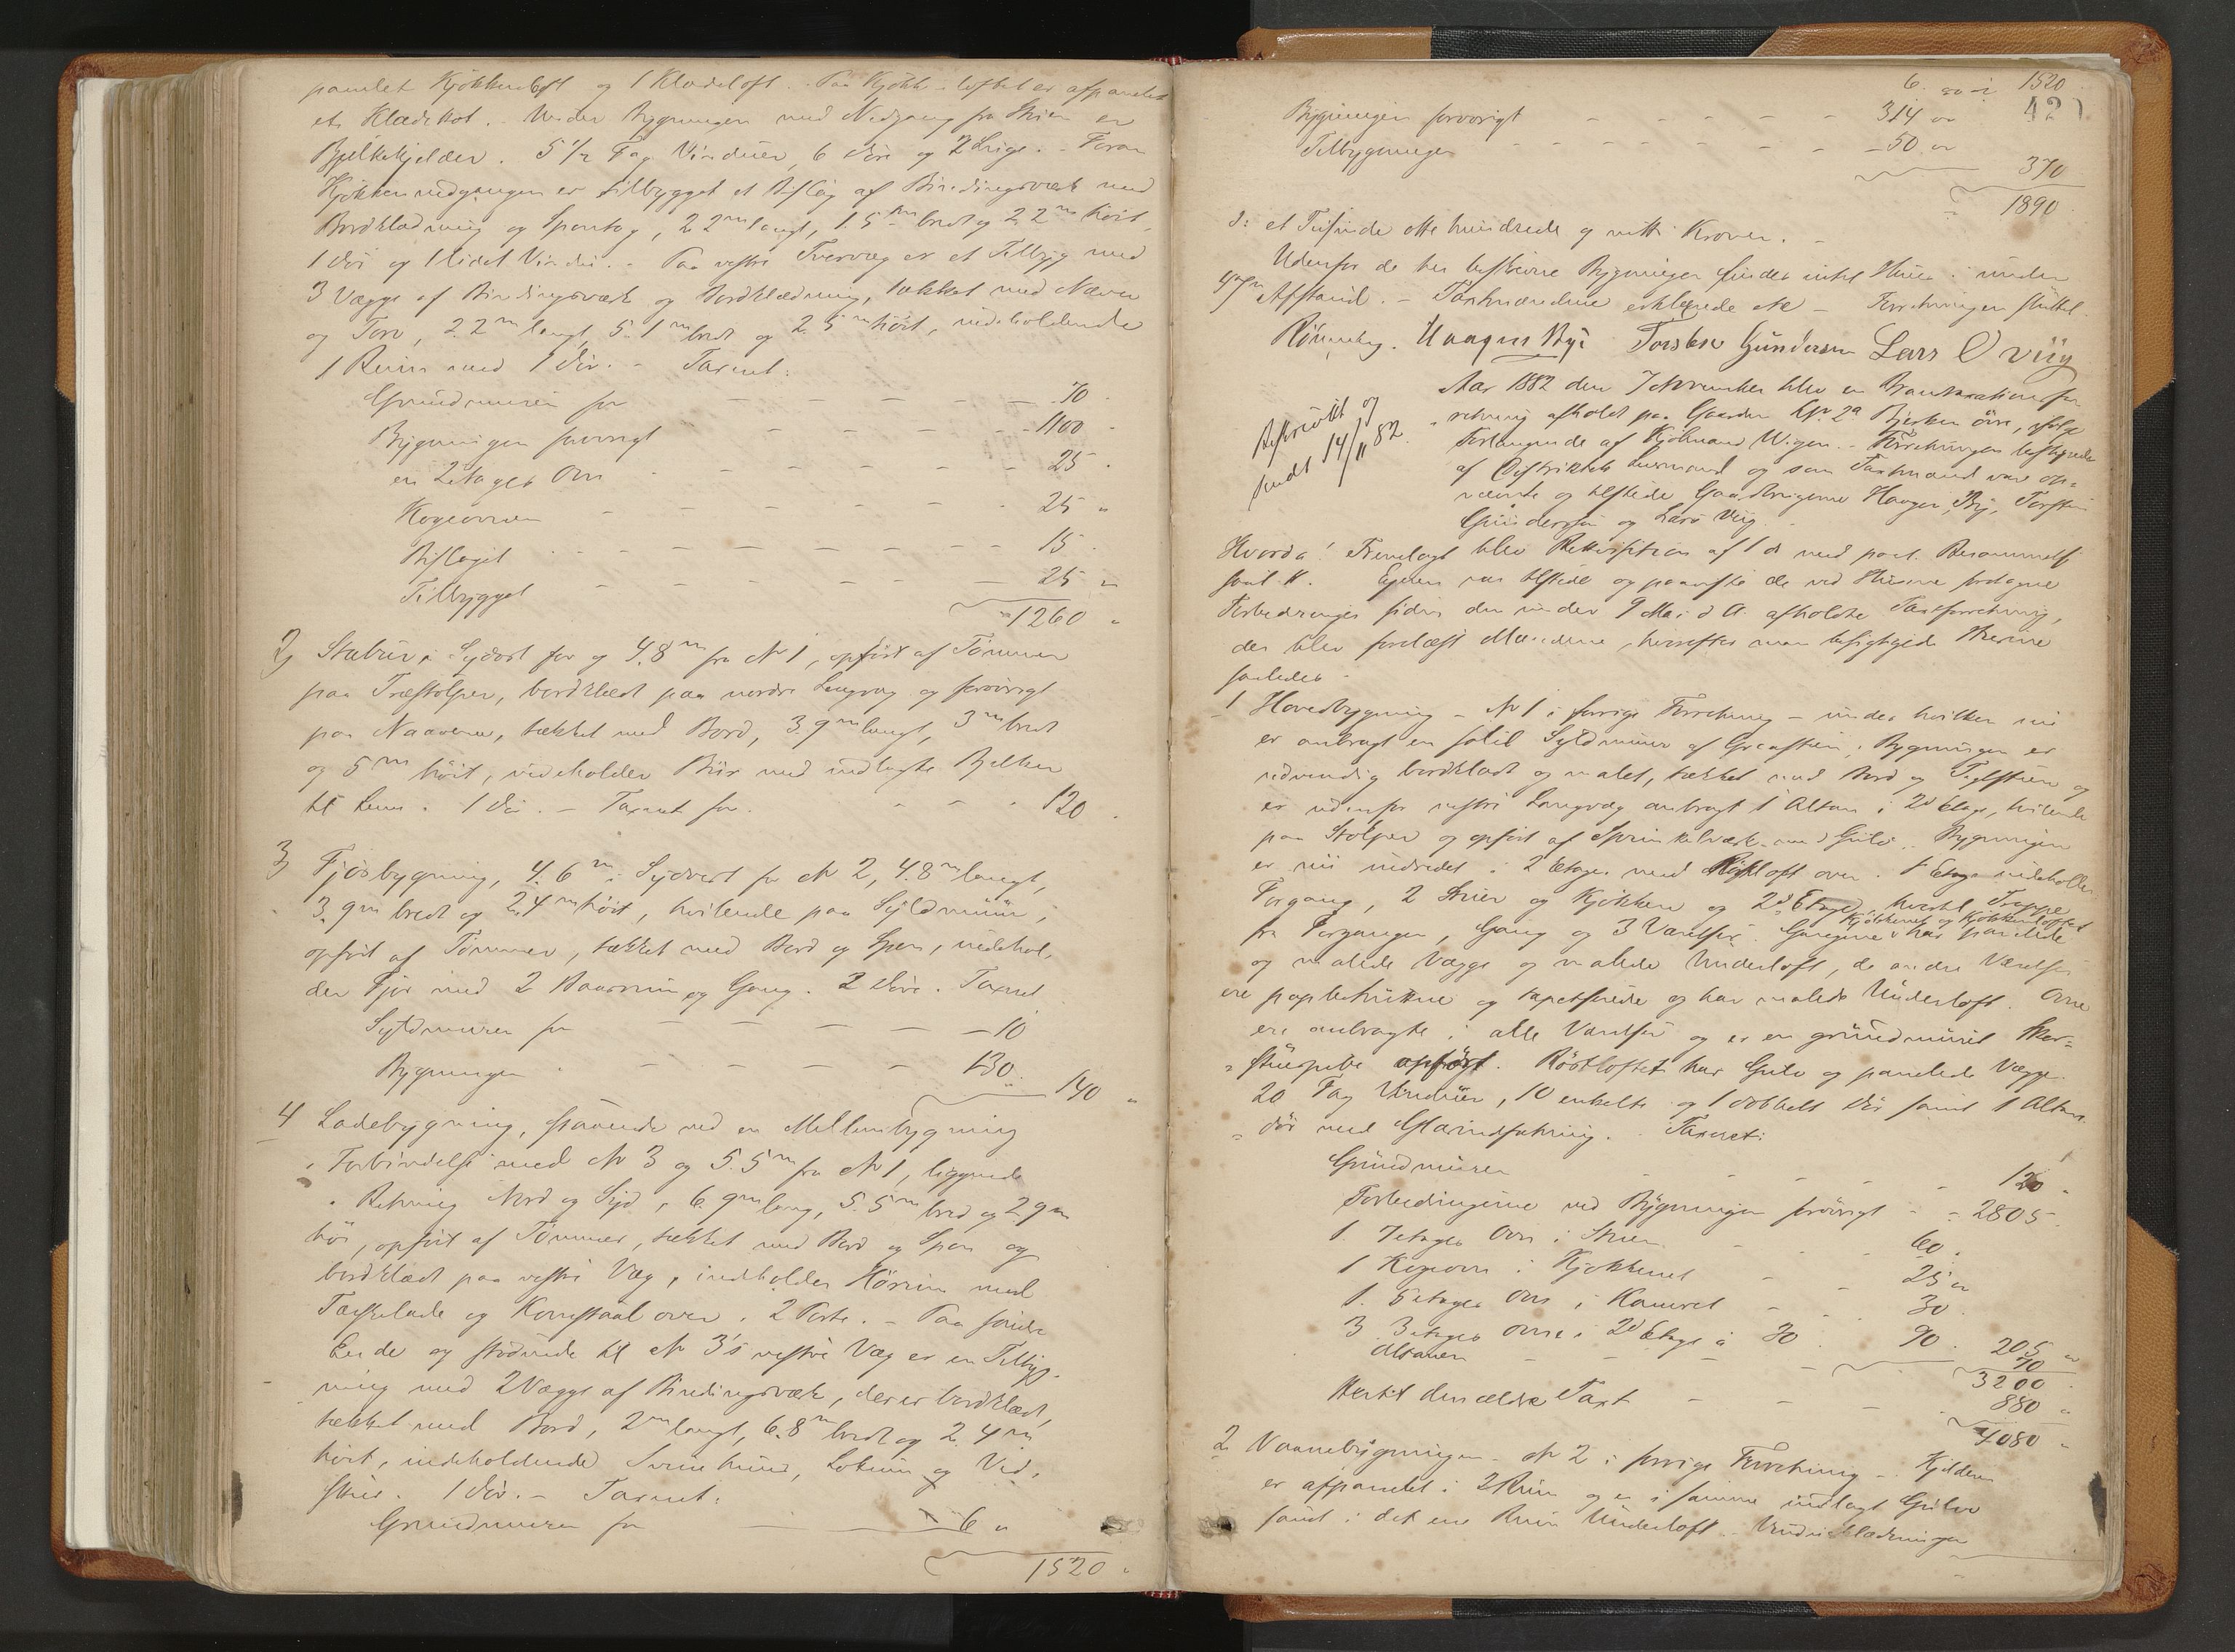 panelet Kjökkenloft og 1 Klædeloft. Paa Kjökk.loftet er afpanelet
et Klædekot. Under Bygningen med Nedgang fra Stuen er
Bjelkekjelder. 5 1/2 Fag Vinduer, 6 Döre og 2 Luge. - Foran
Kjökkenindgangen er tilbygget et Bislag af Bindingsværk med
Bordklædning og Spontag, 2.2 m langt, 1.5 m bredt og 2.2 m höit,
1 Dör og 1 lidet Vindu. - Paa vestre Tvervæg er et Tilbyg med
3 Vægge af Bindingsværk og Bordklædning, tækket med Næver
og Torv, 2.2 m langt, 5.1 m bredt og 2.5 m höit, indeholdende
1 Rum med 1 Dör. - Taxeret:
Grundmuren for - - - - - - 70
Bygningen forövrigt - - - - 1100
en 2 Etages Ovn - - - - - 25
Kogeovnen - - - - - - 25 "
Bislaget - - - - - - - 15
Tilbygget - - - - - - 25 "
1260 "
2) Stabur i Sydost for og 4.8 m fra No 1, opfört af Tömmer
paa Træstolper, bordklædt paa nordre Langvæg og forövrigt
paa Naavene, tækket med Bord, 3.9 m langt, 3 m bredt
og 5 m höit, indeholder Bur med indlagte Bjelker
til Lem. 1 Dör. - Taxeret for - - - 120
3) Fjösbygning, 4.6 m i Sydvest for No 2, 4.8 m langt,
3.9 m bredt og 2.4 m höit, hvilende paa Syldmuur,
opfört af Tömmer, tækket med Bord og Spon, indehol-
der Fjös med 2 Baasrum og Gang. 2 Döre. Taxeret
Syldmuren for - - - - - 10
Bygningen - - - - - 130
140 "
4 Ladebygning, staaende ved en Mellembygning
i Forbindelse med No 3 og 5.5 m fra No 1, liggende
i Retning Nord og Syd, 6.9 m lang, 5.5 m bred og 2.9 m
höi, opfört af Tömmer, tækket med Bord og Spon og
bordklædt paa vestre Væg, indholder Hörum med
Tærskelade og Kornstaal over. 2 Porte. - Paa söndre
Ende og stödende til No 3's vestre Væg er en Tilbyg-
ning med 2 Vægge af Bindingsværk, der er bordklædt,
tækket med Bord, 2 m langt, 6.8 m bredt og 2.4 m
höit, indeholdende Svinehuus, Lokum og Ved-
skur. 1 Dör. - Taxeret:
Grundmuren for 6 "
1520 "
6. 1520
421
Bygningen forövrigt - - - - - 314 "
Tilbygningen - - - - - - 50 "
370
1890
ɔ: et Tusinde otte hundrede og nitti Kroner. -
Udenfor de her beskrevne Bygninger findes intet Huus i under
Afstand. - Taxtmændene erklærede etc - Forretningen sluttet.
Haagen Bye Torsten Gundersen Lars Oviig
Beskrevet og
sendt 14/11 82.
Aar 1882 den 7 November blev en Brandtaxationsfor-
retning afholdt paa Gaarden Lnr 2a Bjerken övre, ifölge
Forlangende af Kjöbmand Wigen. - Forretningen bestyredes
af Distriktets Lensmand og som Taxtmænd vare op-
nævnte og tilstede Gaardbrugerne Haagen Bÿ, Torsten
Gundersen og Lars Viig.
Hvorda! Fremlagt blev Rekvisition af 1 ds med paat. Berammelse
saal. #. Ejeren var tilstede og paaviste de ved Husene foretagne
Forbedringer siden den under 9 Mai d A. afholdte Taxtforretning,
der blev forelæst Mændene, hvorefter man besigtigede Husene
saaledes -
1 Hovedbygning - No 1 i forrige Forretning - under hvilken nu
er anbragt en solid Syldmuur af Graasten; Bygningen er
udvendig bordklædt og malet, tækket med Bord og Taglsten og
er udenfor vestre Langvæg anbragt 1 Altan i 2d Etage, hvilende
paa Stolper og opfört af Sprinkelværk med Gulv. Bygningen
er nu indredet i 2 Etager med Röstloft over. 1 Etage indeholder
Forgang, 2 Stuer og Kjökken og 2d Etage, hvortil Trappe
fra Forgangen, Gang og 3 Værelser. Gangene, Kjökkenet og Kjökkenloftet har panelede
og malede Vægge og malede Underloft, de andre Værelser
ere papbetrukne og tapetserede og har malede Underloft. Ovne
ere anbragte i alle Værelser og er en grundmuret Skor-
stenspibe opfört. Röstloftet har Gulv og panelede Vægge.
20 Fag Vinduer, 10 enkelte og 1 dobbelt Dör samt 1 Altan-
dör med Glasindfatning. - Taxeret:
Grundmuren - - - - - 120
Forbedringerne ved Bygningen forövrigt - - 2805
1. 7 etages Ovn i Stuen - - - 60
1 Kogeovn i Kjökkenet - - 25 "
1. 5 etages Ovn i Kamret - - 30
3 3 etages Ovne i 2d Etage à 30 90 205 "
Altanen - - - - 70
3200
Hertil den ældre Taxt - - - 880 "
4080 "
2 Vaanebygningen - No 2 i forrige Forretning - Kjelderen
er afpanelet i 2 Rum og er i samme indlagt Gulve
samt i det ene Rum Underloft. Vindusklædningen